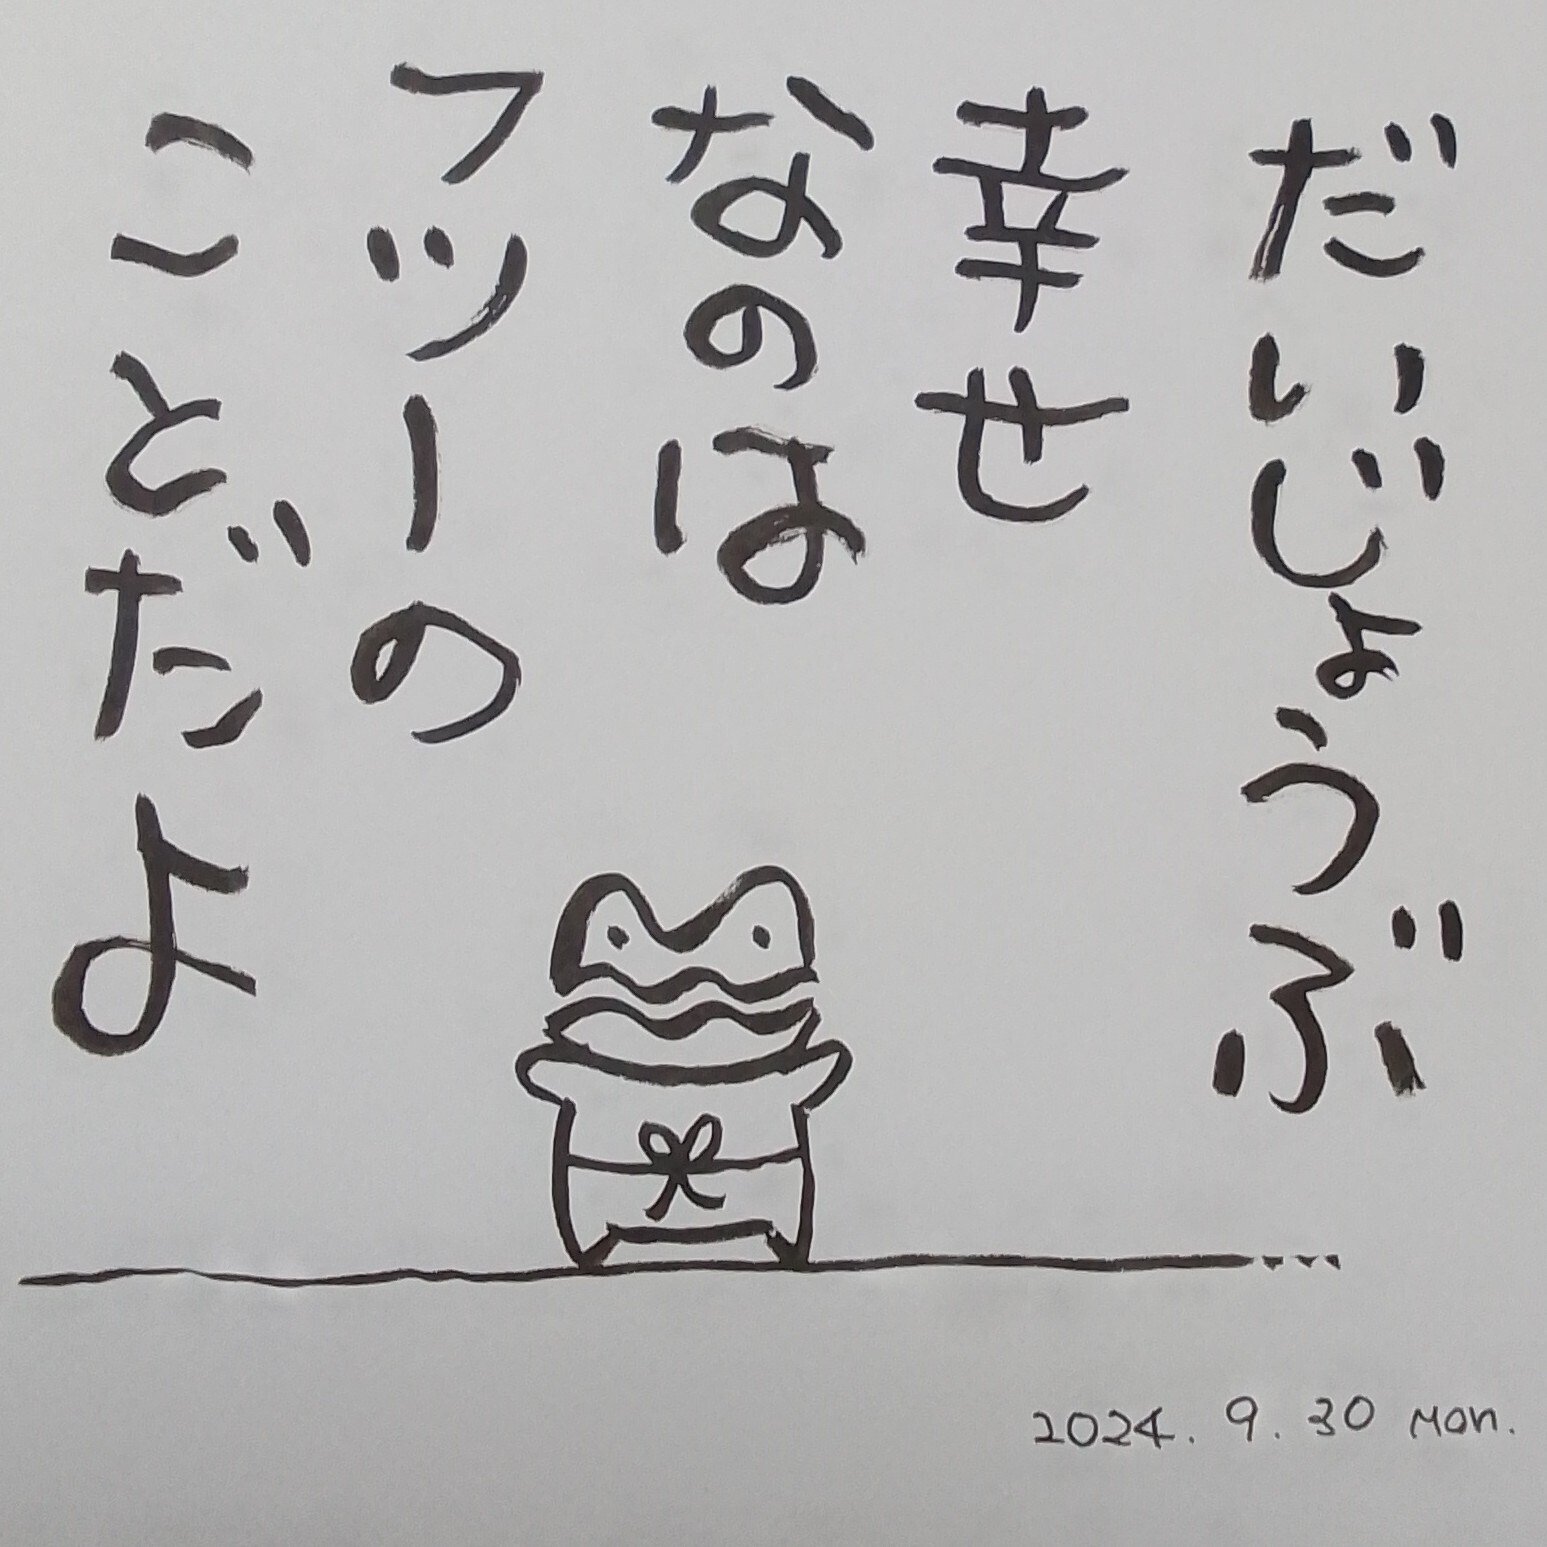 だいじょうぶ
幸せ
なのは
フツーの
ことだよ
2024. 9. 30 Mon.